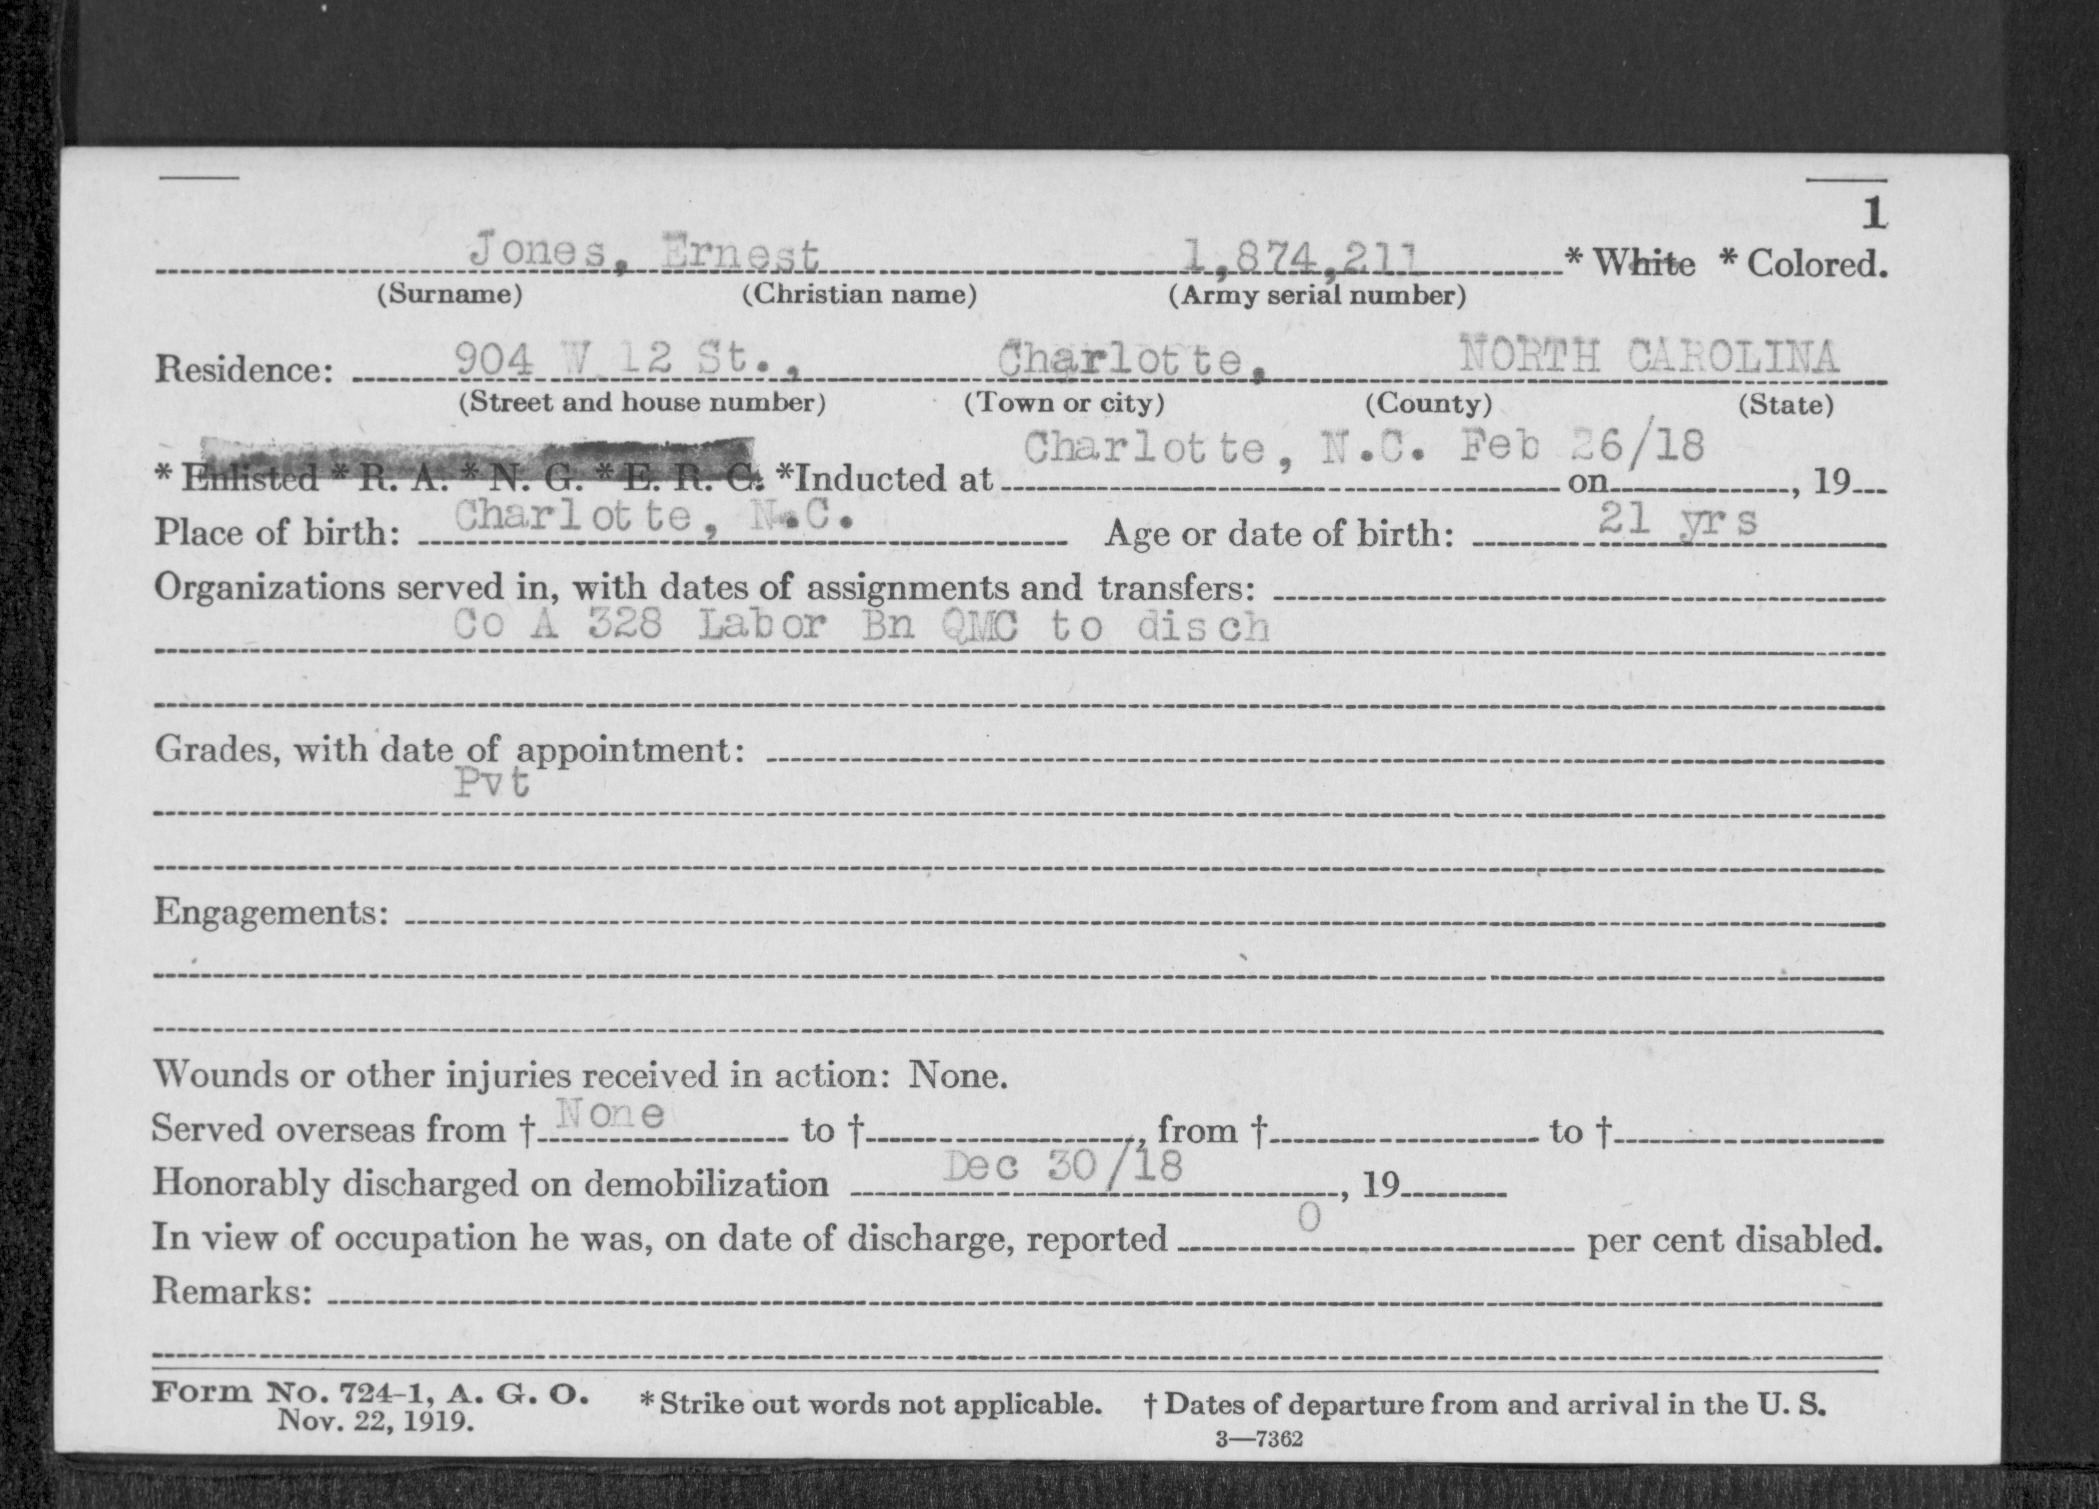 1
Jones, Ernest 1,874,211 * White * Colored.
(Surname) (Christian name) (Army serial number)
Residence: 904 W 12 St., Charlotte, NORTH CAROLINA
(Street and house number) (Town or city) (County) (State)
* Enlisted * R. A. * N. G. * E. R. C. *Inducted at Charlotte, N.C. Feb 26/18 on , 19
Place of birth: Charlotte, N.C. Age or date of birth: 21 yrs
Organizations served in, with dates of assignments and transfers:
Co A 328 Labor Bn QMC to disch
Grades, with date of appointment:
Pvt
Engagements:
Wounds or other injuries received in action: None.
Served overseas from † None to † , from † to †
Honorably discharged on demobilization Dec 30/18 , 19
In view of occupation he was, on date of discharge, reported 0 per cent disabled.
Remarks:
Form No. 724-1, A. G. O. * Strike out words not applicable. † Dates of departure from and arrival in the U. S.
Nov. 22, 1919.
3—7362